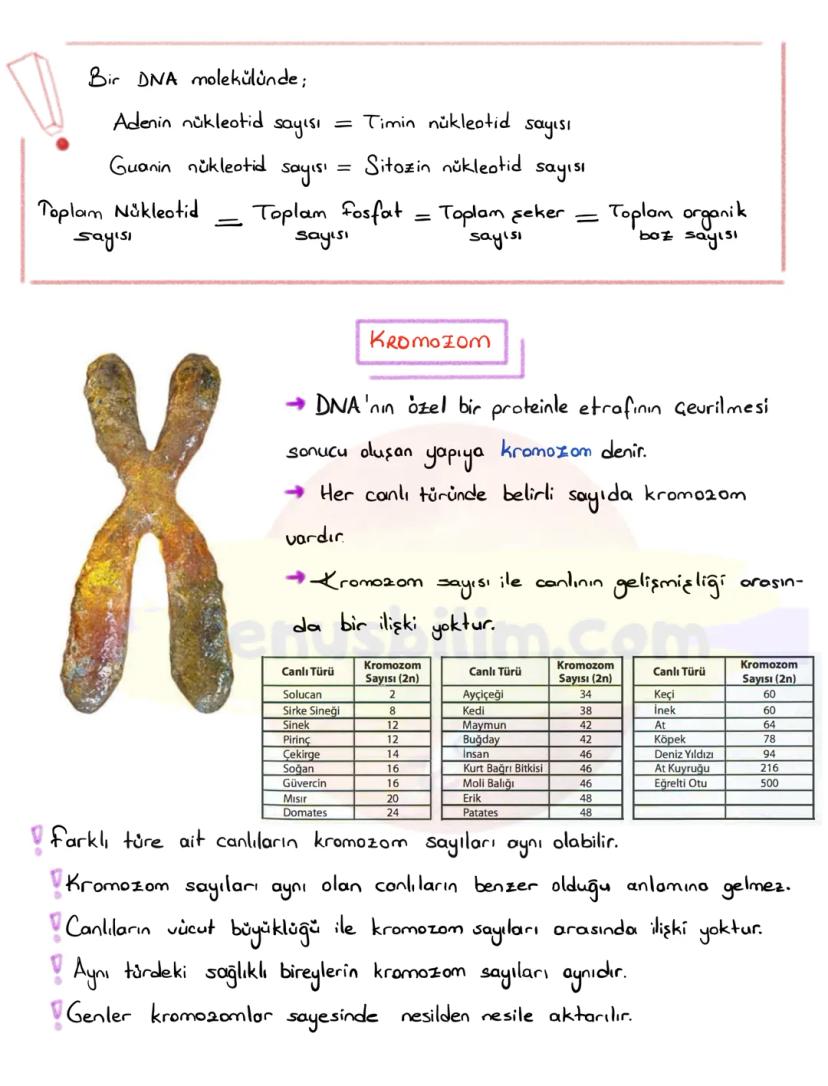 Bir DNA molekülünde;
Adenin nükleotid sayısı = Timin nükleotid sayısı
Guanin nükleotid sayısı = Sitozin nükleotid sayısı
Toplam Nükleotid sayısı = Toplam fosfat sayısı = Toplam şeker sayısı = Toplam organik baz sayısı
Kromozom
→ DNA'nın özel bir proteinle etrafının çevrilmesi
sonucu oluşan yapıya kromozom denir.
→ Her canlı türünde belirli sayıda kromozom
vardır.
→ Kromozom sayısı ile canlının gelişmişliği arasın-
da bir ilişki yoktur.
enusbilim.com
Canlı Türü Kromozom Sayısı (2n)
Solucan 2
Sirke Sineği 8
Sinek 12
Pirinç 12
Çekirge 14
Soğan 16
Güvercin 16
Mısır 20
Domates 24
Canlı Türü Kromozom Sayısı (2n)
Ayçiçeği 34
Kedi 38
Maymun 42
Buğday 42
İnsan 46
Kurt Bağrı Bitkisi 46
Moli Balığı 46
Erik 48
Patates 48
Canlı Türü Kromozom Sayısı (2n)
Keçi 60
İnek 60
At 64
Köpek 78
Deniz Yıldızı 94
At Kuyruğu 216
Eğrelti Otu 500
! farklı türe ait canlıların kromozom sayıları aynı olabilir.
! Kromozom sayıları aynı olan canlıların benzer olduğu anlamına gelmez.
! Canlıların vücut büyüklüğü ile kromozom sayıları arasında ilişki yoktur.
! Aynı türdeki sağlıklı bireylerin kromozom sayıları aynıdır.
! Genler kromozomlar sayesinde nesilden nesile aktarılır.